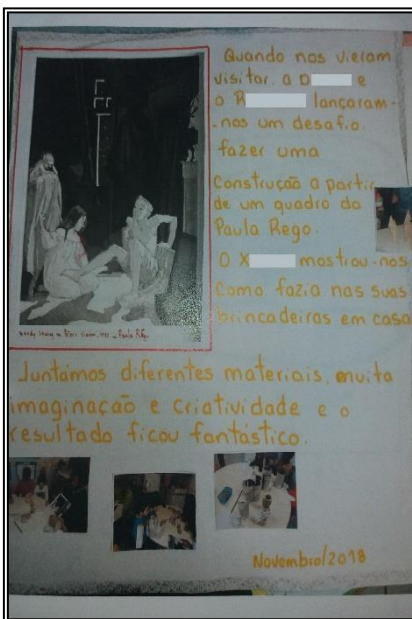 Quando nos vieram
visitar a D e
o R lançaram-
-nos um desafio.
fazer uma
Construção a partir
de um quadro da
Paula Rego.
O X mostrou-nos
Como fazia nas suas
brincadeiras em casa
Paula Rego
Juntámos diferentes materiais, muita
imaginação e criatividade e o
resultado ficou fantástico.
Novembro/2018